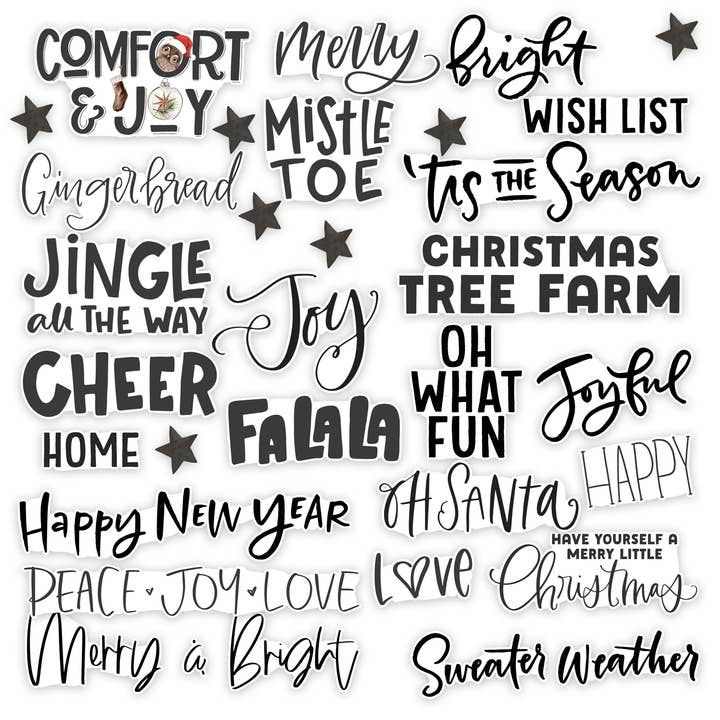 COMFORT
& JOY
Merry
Bright
WISH LIST
MiSTLE
TOE
'tis THE Season
Gingerbread
JiNGLE
all THE WAY
Joy
CHRISTMAS
TREE FARM
CHEER
HOME
FALALA
OH
WHAT
FUN
Joyful
HAPPY
Happy New Year
OH SANTA
HAVE YOURSELF A
MERRY LITTLE
Christmas
PEACE · JOY · LOVE
LOVE
Merry & Bright
Sweater Weather